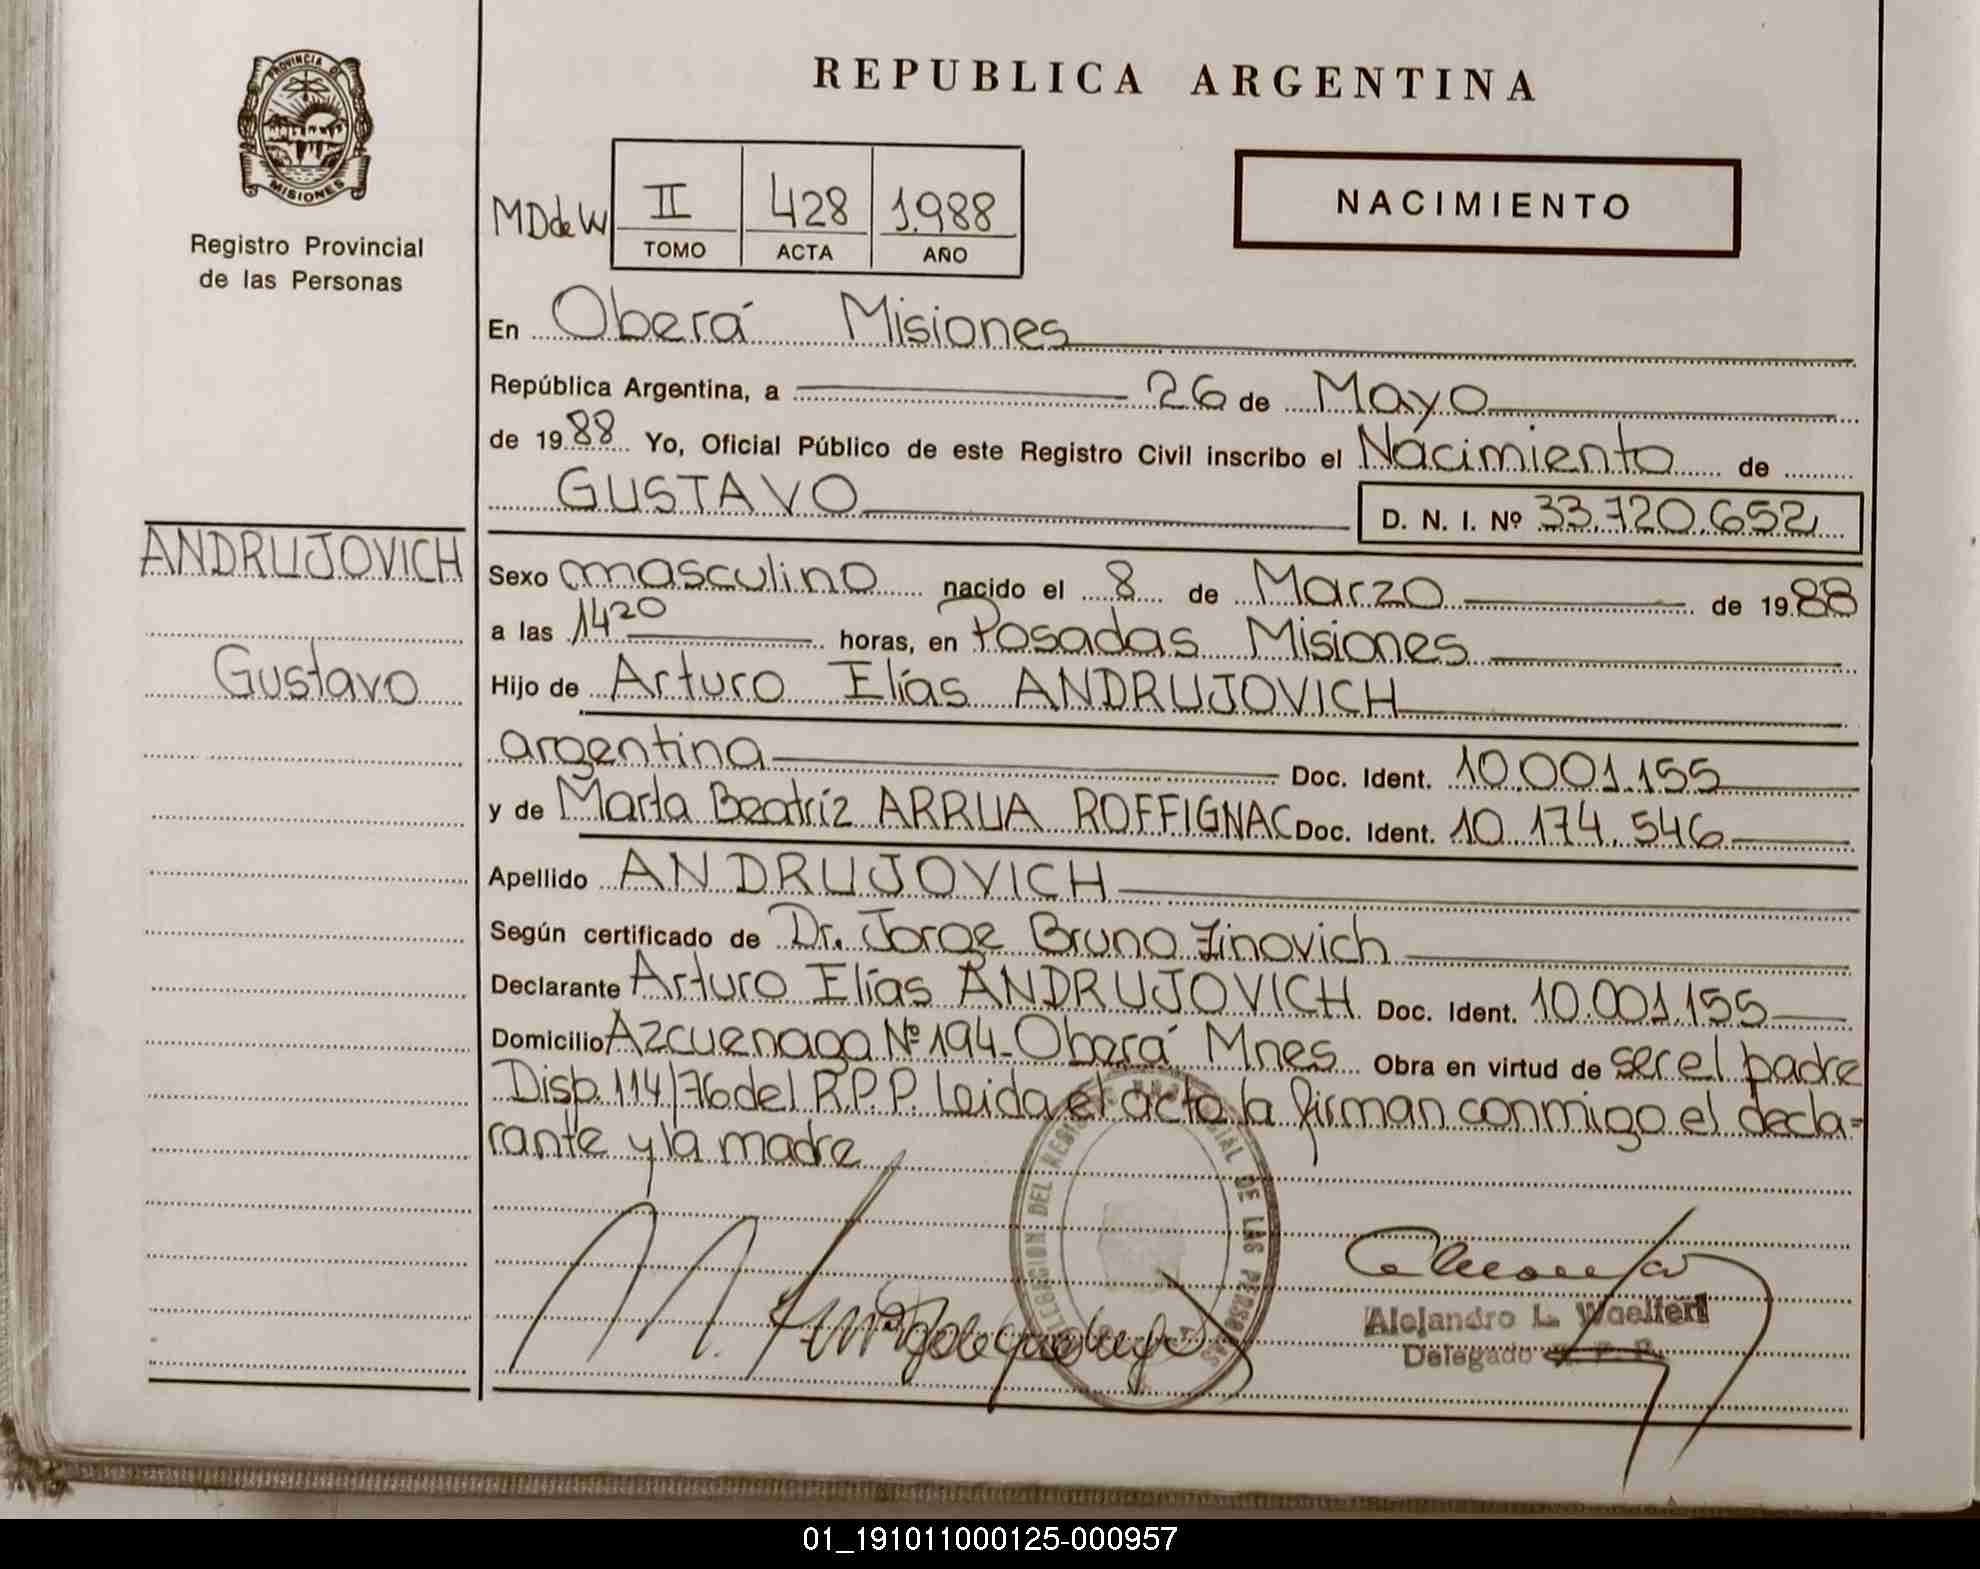 PROVINCIA DE
MISIONES
Registro Provincial
de las Personas
REPUBLICA ARGENTINA
NACIMIENTO
MDdeW II 428 1.988
TOMO ACTA AÑO
En Oberá Misiones
República Argentina, a 26 de Mayo
de 1988 Yo, Oficial Público de este Registro Civil inscribo el Nacimiento de
GUSTAVO D. N. I. Nº 33.720.652
ANDRUJOVICH
Gustavo
Sexo masculino nacido el 8 de Marzo de 1988
a las 14 20 horas, en Posadas Misiones
Hijo de Arturo Elías ANDRUJOVICH
argentina Doc. Ident. 10.001.155
y de Marta Beatríz ARRUA ROFFIGNAC Doc. Ident. 10.174.546
Apellido ANDRUJOVICH
Según certificado de Dr. Jorge Bruno Zinovich
Declarante Arturo Elías ANDRUJOVICH Doc. Ident. 10.001.155
Domicilio Azcuenaga Nº 194-Oberá Mnes Obra en virtud de ser el padre
Disp. 114/76 del R.P.P. Leida el acto la firman conmigo el decla-
rante y la madre
DEL DE LAS
Alejandro L. Woelfert
Delegado R. P. P.
01_191011000125-000957